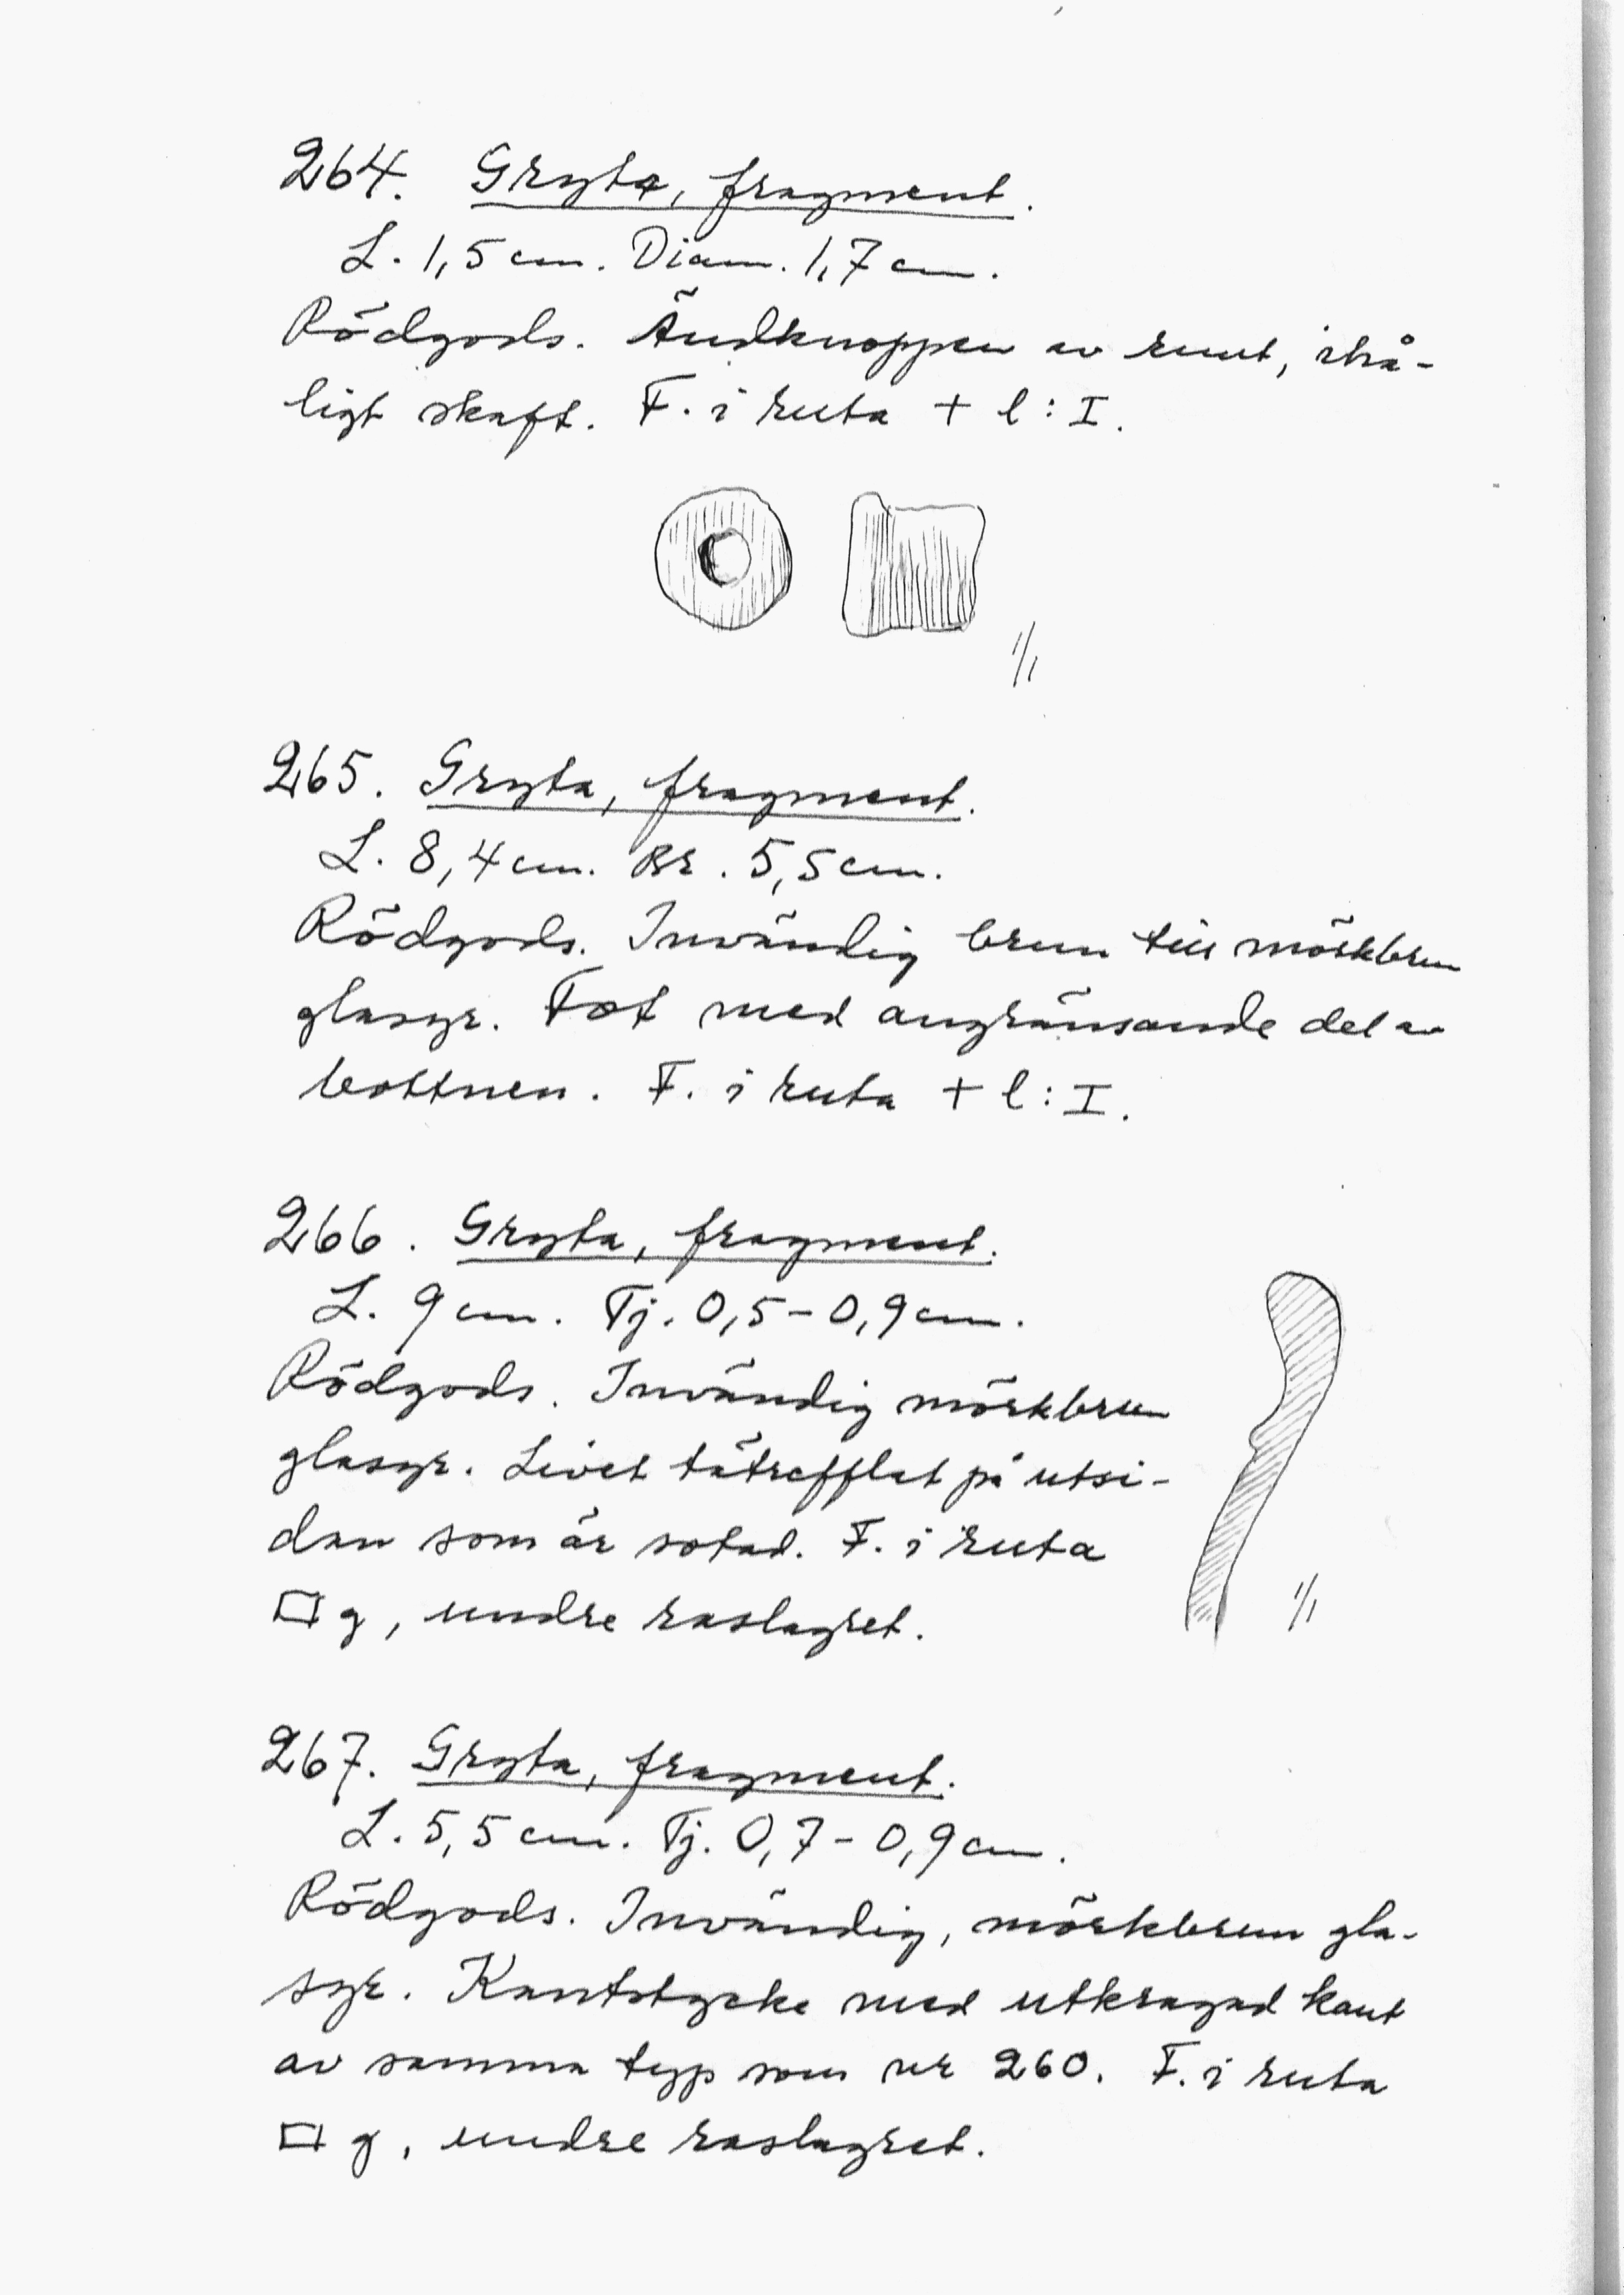 264. Gryta, fragment.
L. 1,5 cm. Diam. 1,7 cm.
Rödgods. Ändknoppen av runt, ihå-
ligt skaft. F. i ruta + l : I.
1/1
265. Gryta, fragment.
L. 8,4 cm. Br. 5,5 cm.
Rödgods. Invändig brun till mörkbrun
glasyr. Fot med angränsande del av
bottnen. F. i ruta + l : I.
266. Gryta, fragment.
L. 9 cm. Tj. 0,5 - 0,9 cm.
Rödgods. Invändig mörkbrun
glasyr. Livet tätrefflat på utsi-
dan som är sotad. F. i ruta
□ g, undre raslagret.
1/1
267. Gryta, fragment.
L. 5,5 cm. Tj. 0,7 - 0,9 cm.
Rödgods. Invändig, mörkbrun gla-
syr. Kantstycke med utkragad kant
av samma typ som nr 260. F. i ruta
□ g, undre raslagret.